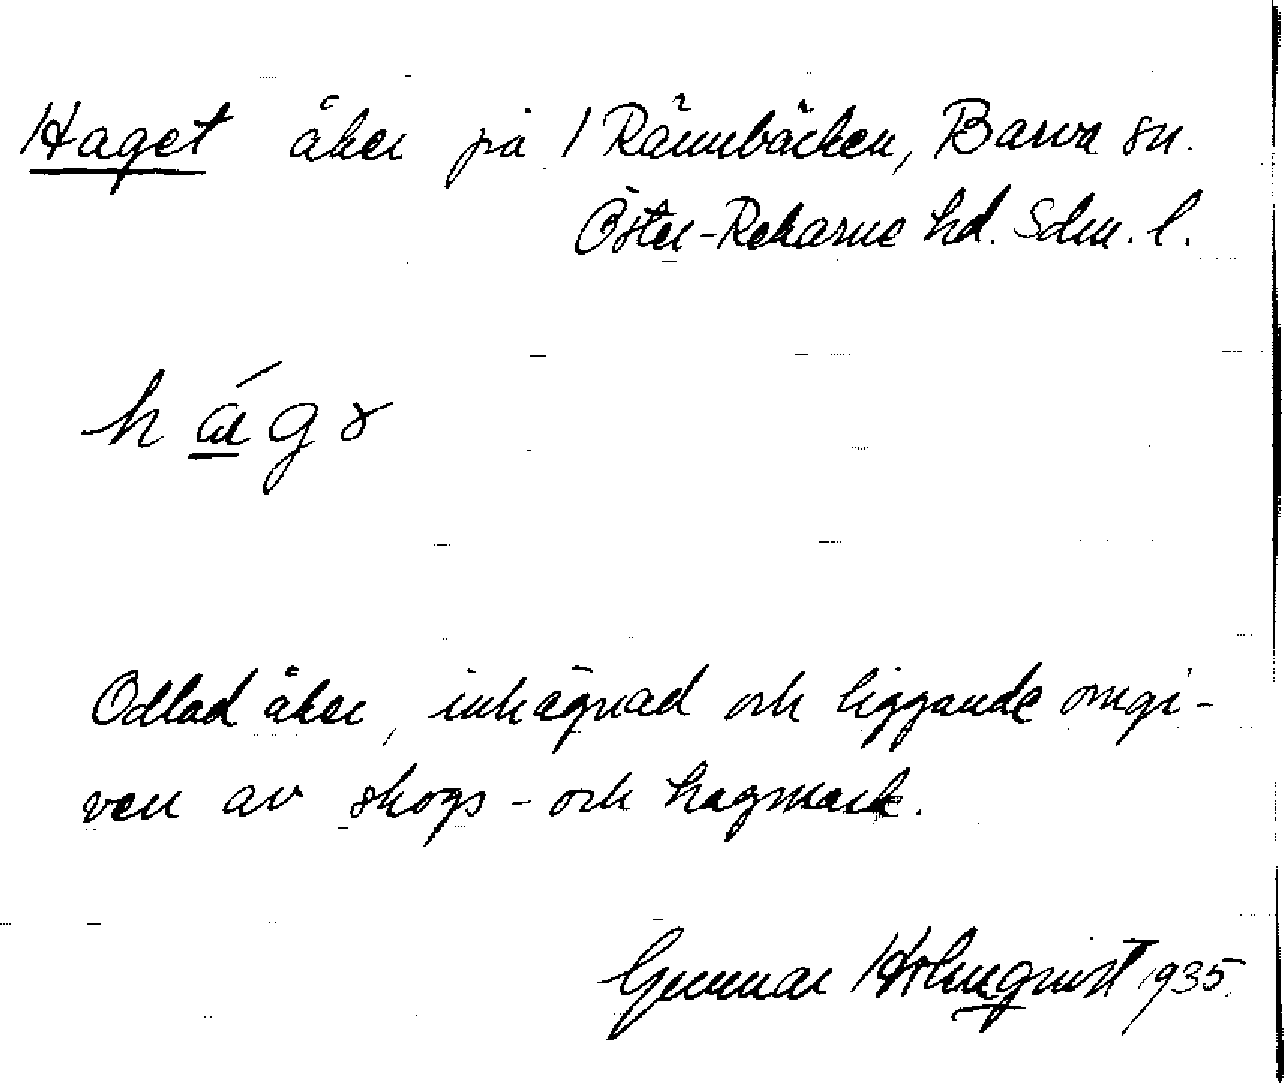 Haget åker på 1 Rännbäcken, Barva sn.
Öster-Rekarne hd. Sdm. l.
Odlad åker, inhägnad och liggande omgi-
ven av skogs- och hagmark.
Gunnar Holmqvist 1935.